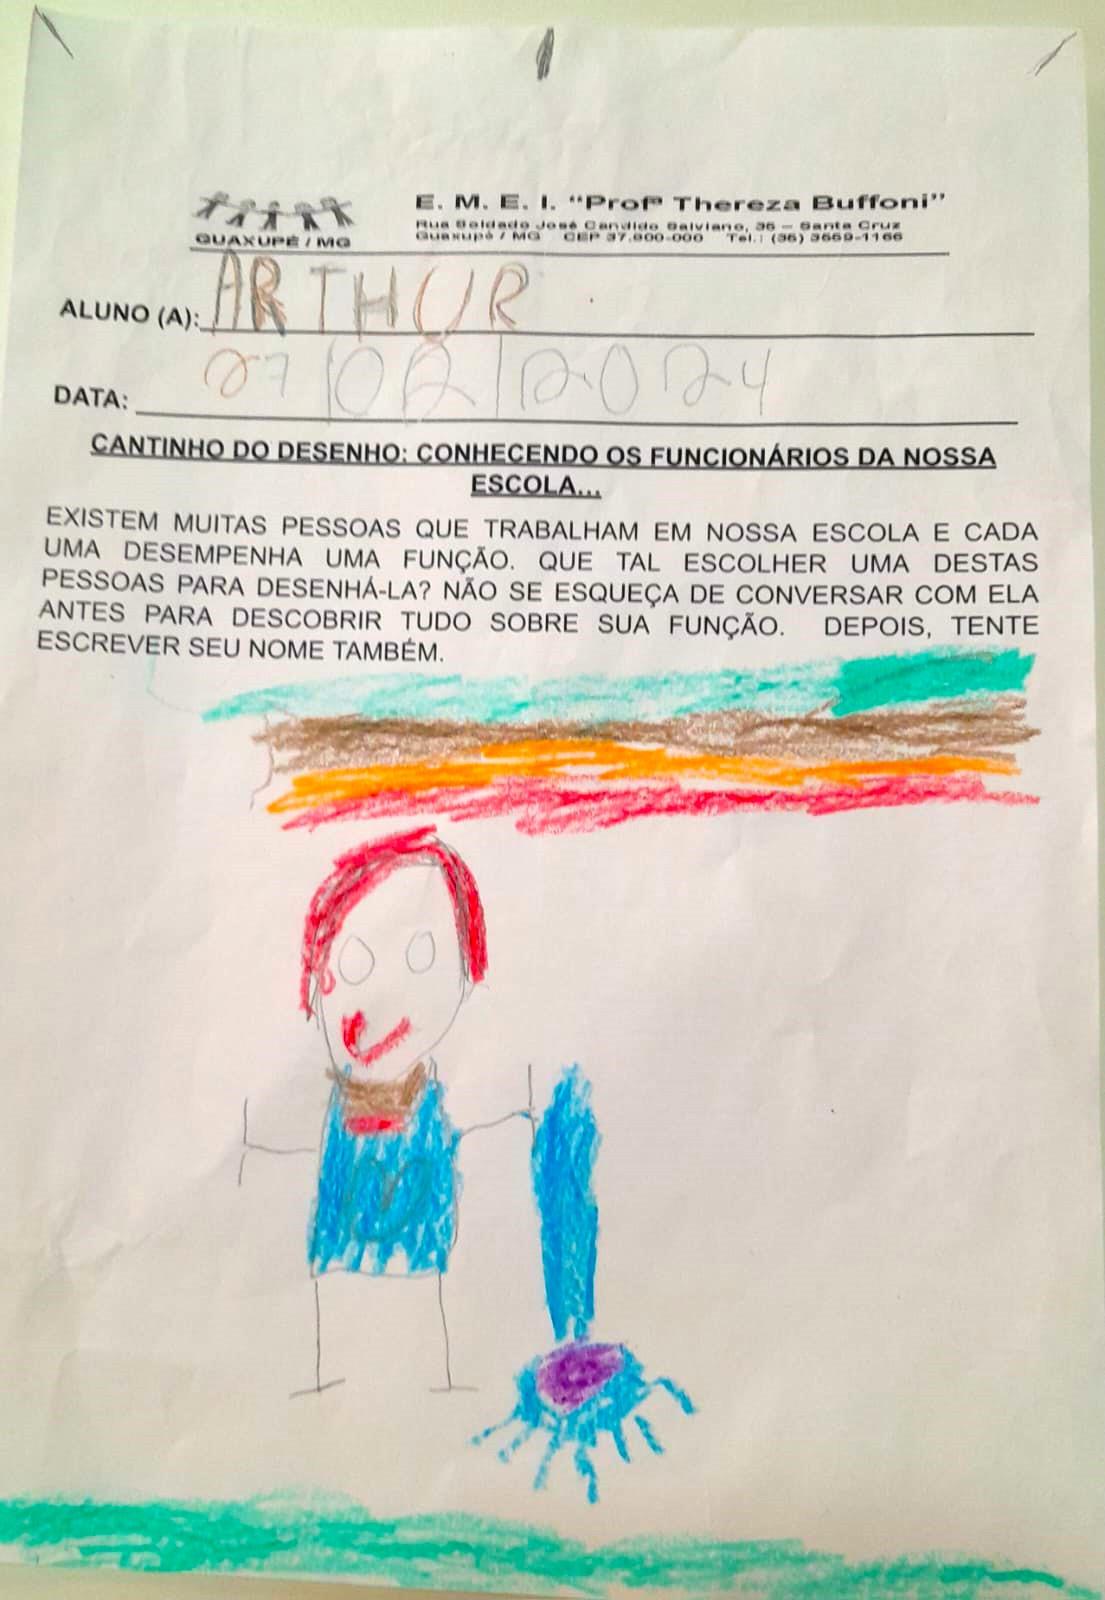 E. M. E. I. “Profª Thereza Buffoni”
Rua Soldado José Candido Salviano, 35 – Santa Cruz
Guaxupé / MG CEP 37.800-000 Tel.: (35) 3559-1166
GUAXUPÉ / MG
ALUNO (A): ARTHUR
DATA: 27/02/2024
CANTINHO DO DESENHO: CONHECENDO OS FUNCIONÁRIOS DA NOSSA
ESCOLA...
EXISTEM MUITAS PESSOAS QUE TRABALHAM EM NOSSA ESCOLA E CADA
UMA DESEMPENHA UMA FUNÇÃO. QUE TAL ESCOLHER UMA DESTAS
PESSOAS PARA DESENHÁ-LA? NÃO SE ESQUEÇA DE CONVERSAR COM ELA
ANTES PARA DESCOBRIR TUDO SOBRE SUA FUNÇÃO. DEPOIS, TENTE
ESCREVER SEU NOME TAMBÉM.